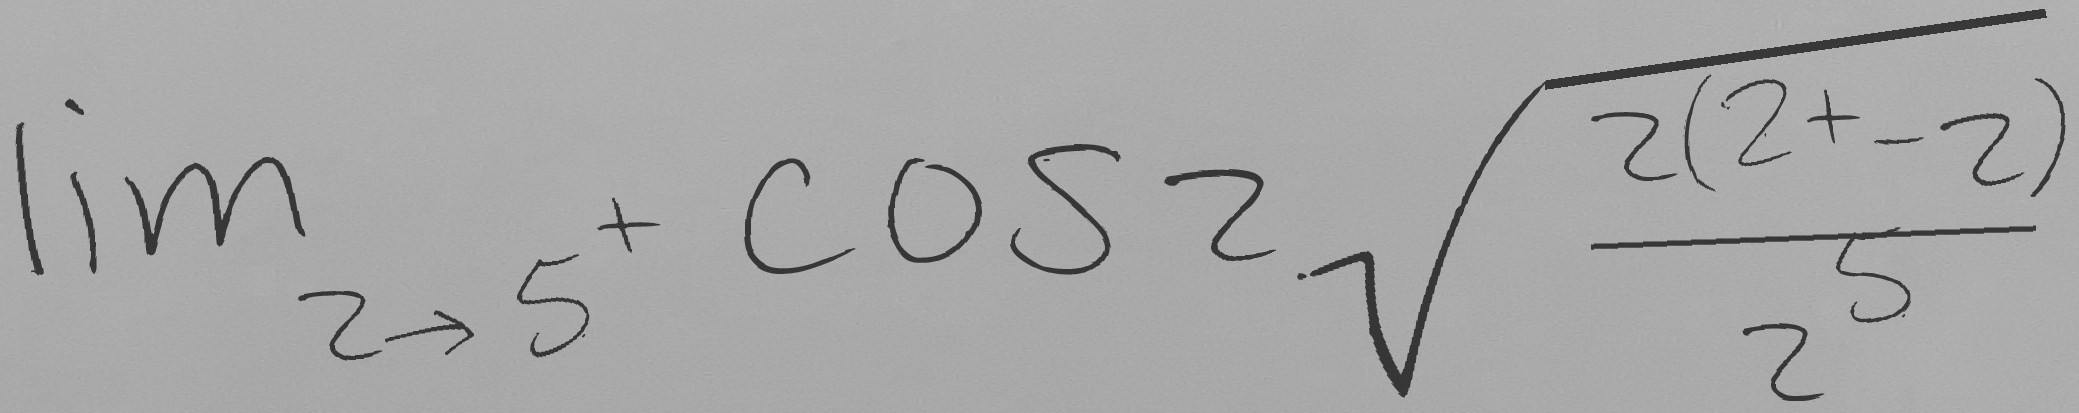 \lim_{z \to 5^+} \cos z \sqrt{\frac{z(2 + -z)}{z^5}}